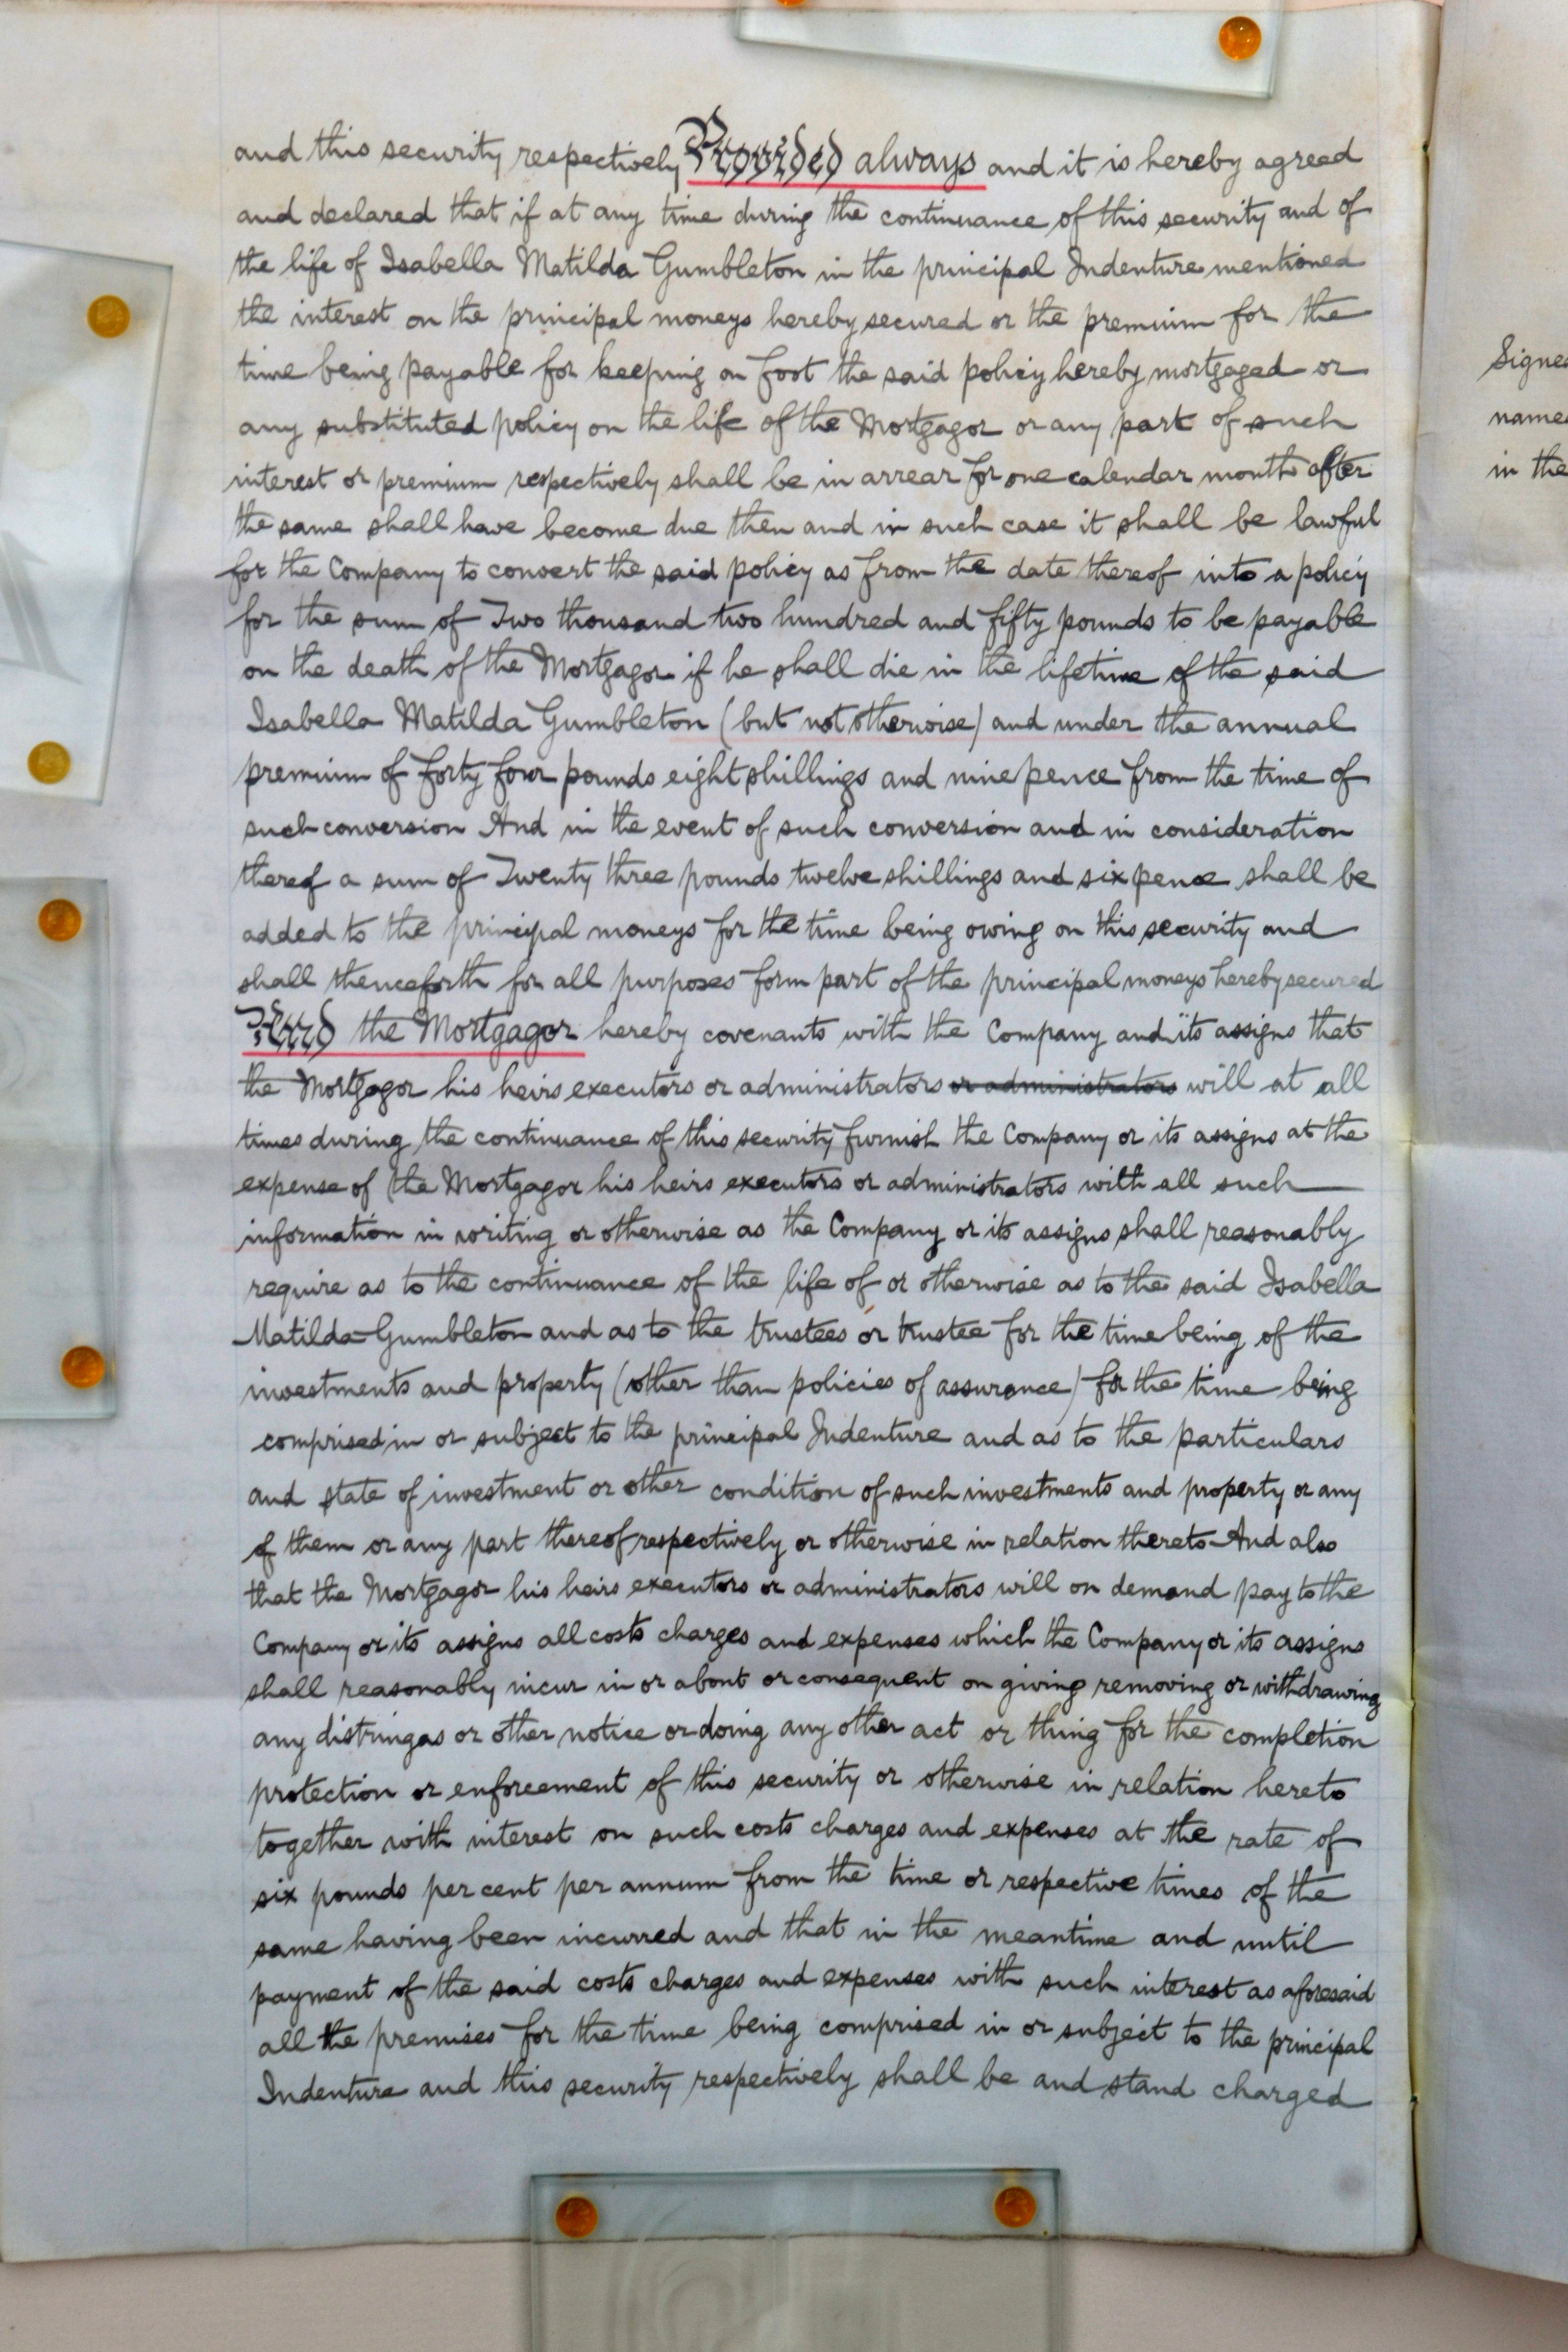 and this security respectively Provided always and it is hereby agreed
and declared that if at any time during the continuance of this security and of
the life of Isabella Matilda Gumbleton in the principal Indenture mentioned
the interest on the principal moneys hereby secured or the premium for the
time being payable for keeping on foot the said policy hereby mortgaged or
any substituted policy on the life of the Mortgagor or any part of such
interest or premium respectively shall be in arrear for one calendar month after
the same shall have become due then and in such case it shall be lawful
for the Company to convert the said policy as from the date thereof into a policy
for the sum of Two thousand two hundred and fifty pounds to be payable
on the death of the Mortgagor if he shall die in the lifetime of the said
Isabella Matilda Gumbleton (but not otherwise) and under the annual
premium of forty four pounds eight shillings and nine pence from the time of
such conversion And in the event of such conversion and in consideration
thereof a sum of Twenty three pounds twelve shillings and six pence shall be
added to the principal moneys for the time being owing on this security and
shall thenceforth for all purposes form part of the principal moneys hereby secured
And the Mortgagor hereby covenants with the Company and its assigns that
the Mortgagor his heirs executors or administrators or administrators will at all
times during the continuance of this security furnish the Company or its assigns at the
expense of the Mortgagor his heirs executors or administrators with all such
information in writing or otherwise as the Company or its assigns shall reasonably
require as to the continuance of the life of or otherwise as to the said Isabella
Matilda Gumbleton and as to the trustees or trustee for the time being of the
investments and property (other than policies of assurance) for the time being
comprised in or subject to the principal Indenture and as to the particulars
and state of investment or other condition of such investments and property or any
of them or any part thereof respectively or otherwise in relation thereto And also
that the Mortgagor his heirs executors or administrators will on demand pay to the
Company or its assigns all costs charges and expenses which the Company or its assigns
shall reasonably incur in or about or consequent on giving removing or withdrawing
any distringas or other notice or doing any other act or thing for the completion
protection or enforcement of this security or otherwise in relation hereto
together with interest on such costs charges and expenses at the rate of
six pounds per cent per annum from the time or respective times of the
same having been incurred and that in the meantime and until
payment of the said costs charges and expenses with such interest as aforesaid
all the premises for the time being comprised in or subject to the principal
Indenture and this security respectively shall be and stand charged
Signe
name
in the